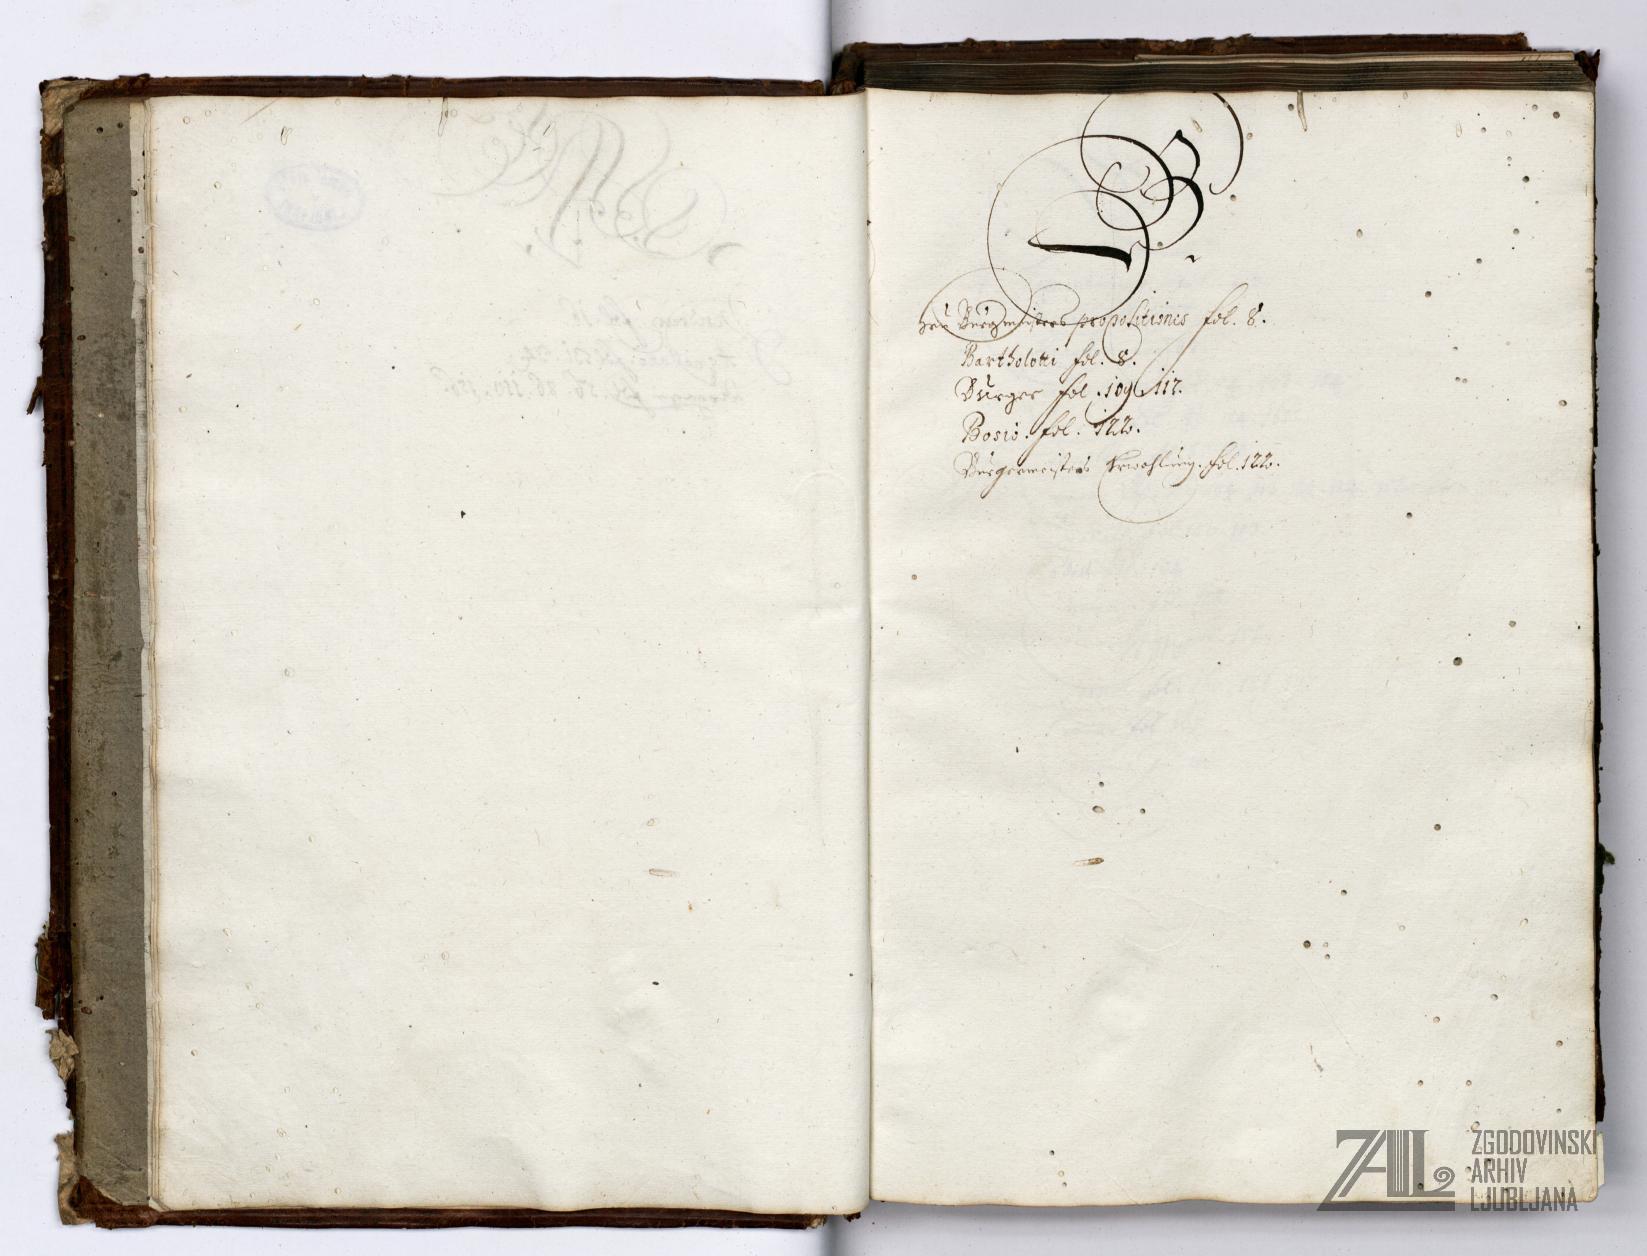 B.
Herr Burgmeisters propositiones fol. 8.
Bartholotti fol. 8.
Burger fol. 109. 117.
Bosio. fol. 122.
Burgermeisters Erwehlung. fol. 122.
ZAL
ZGODOVINSKI
ARHIV
LJUBLJANA